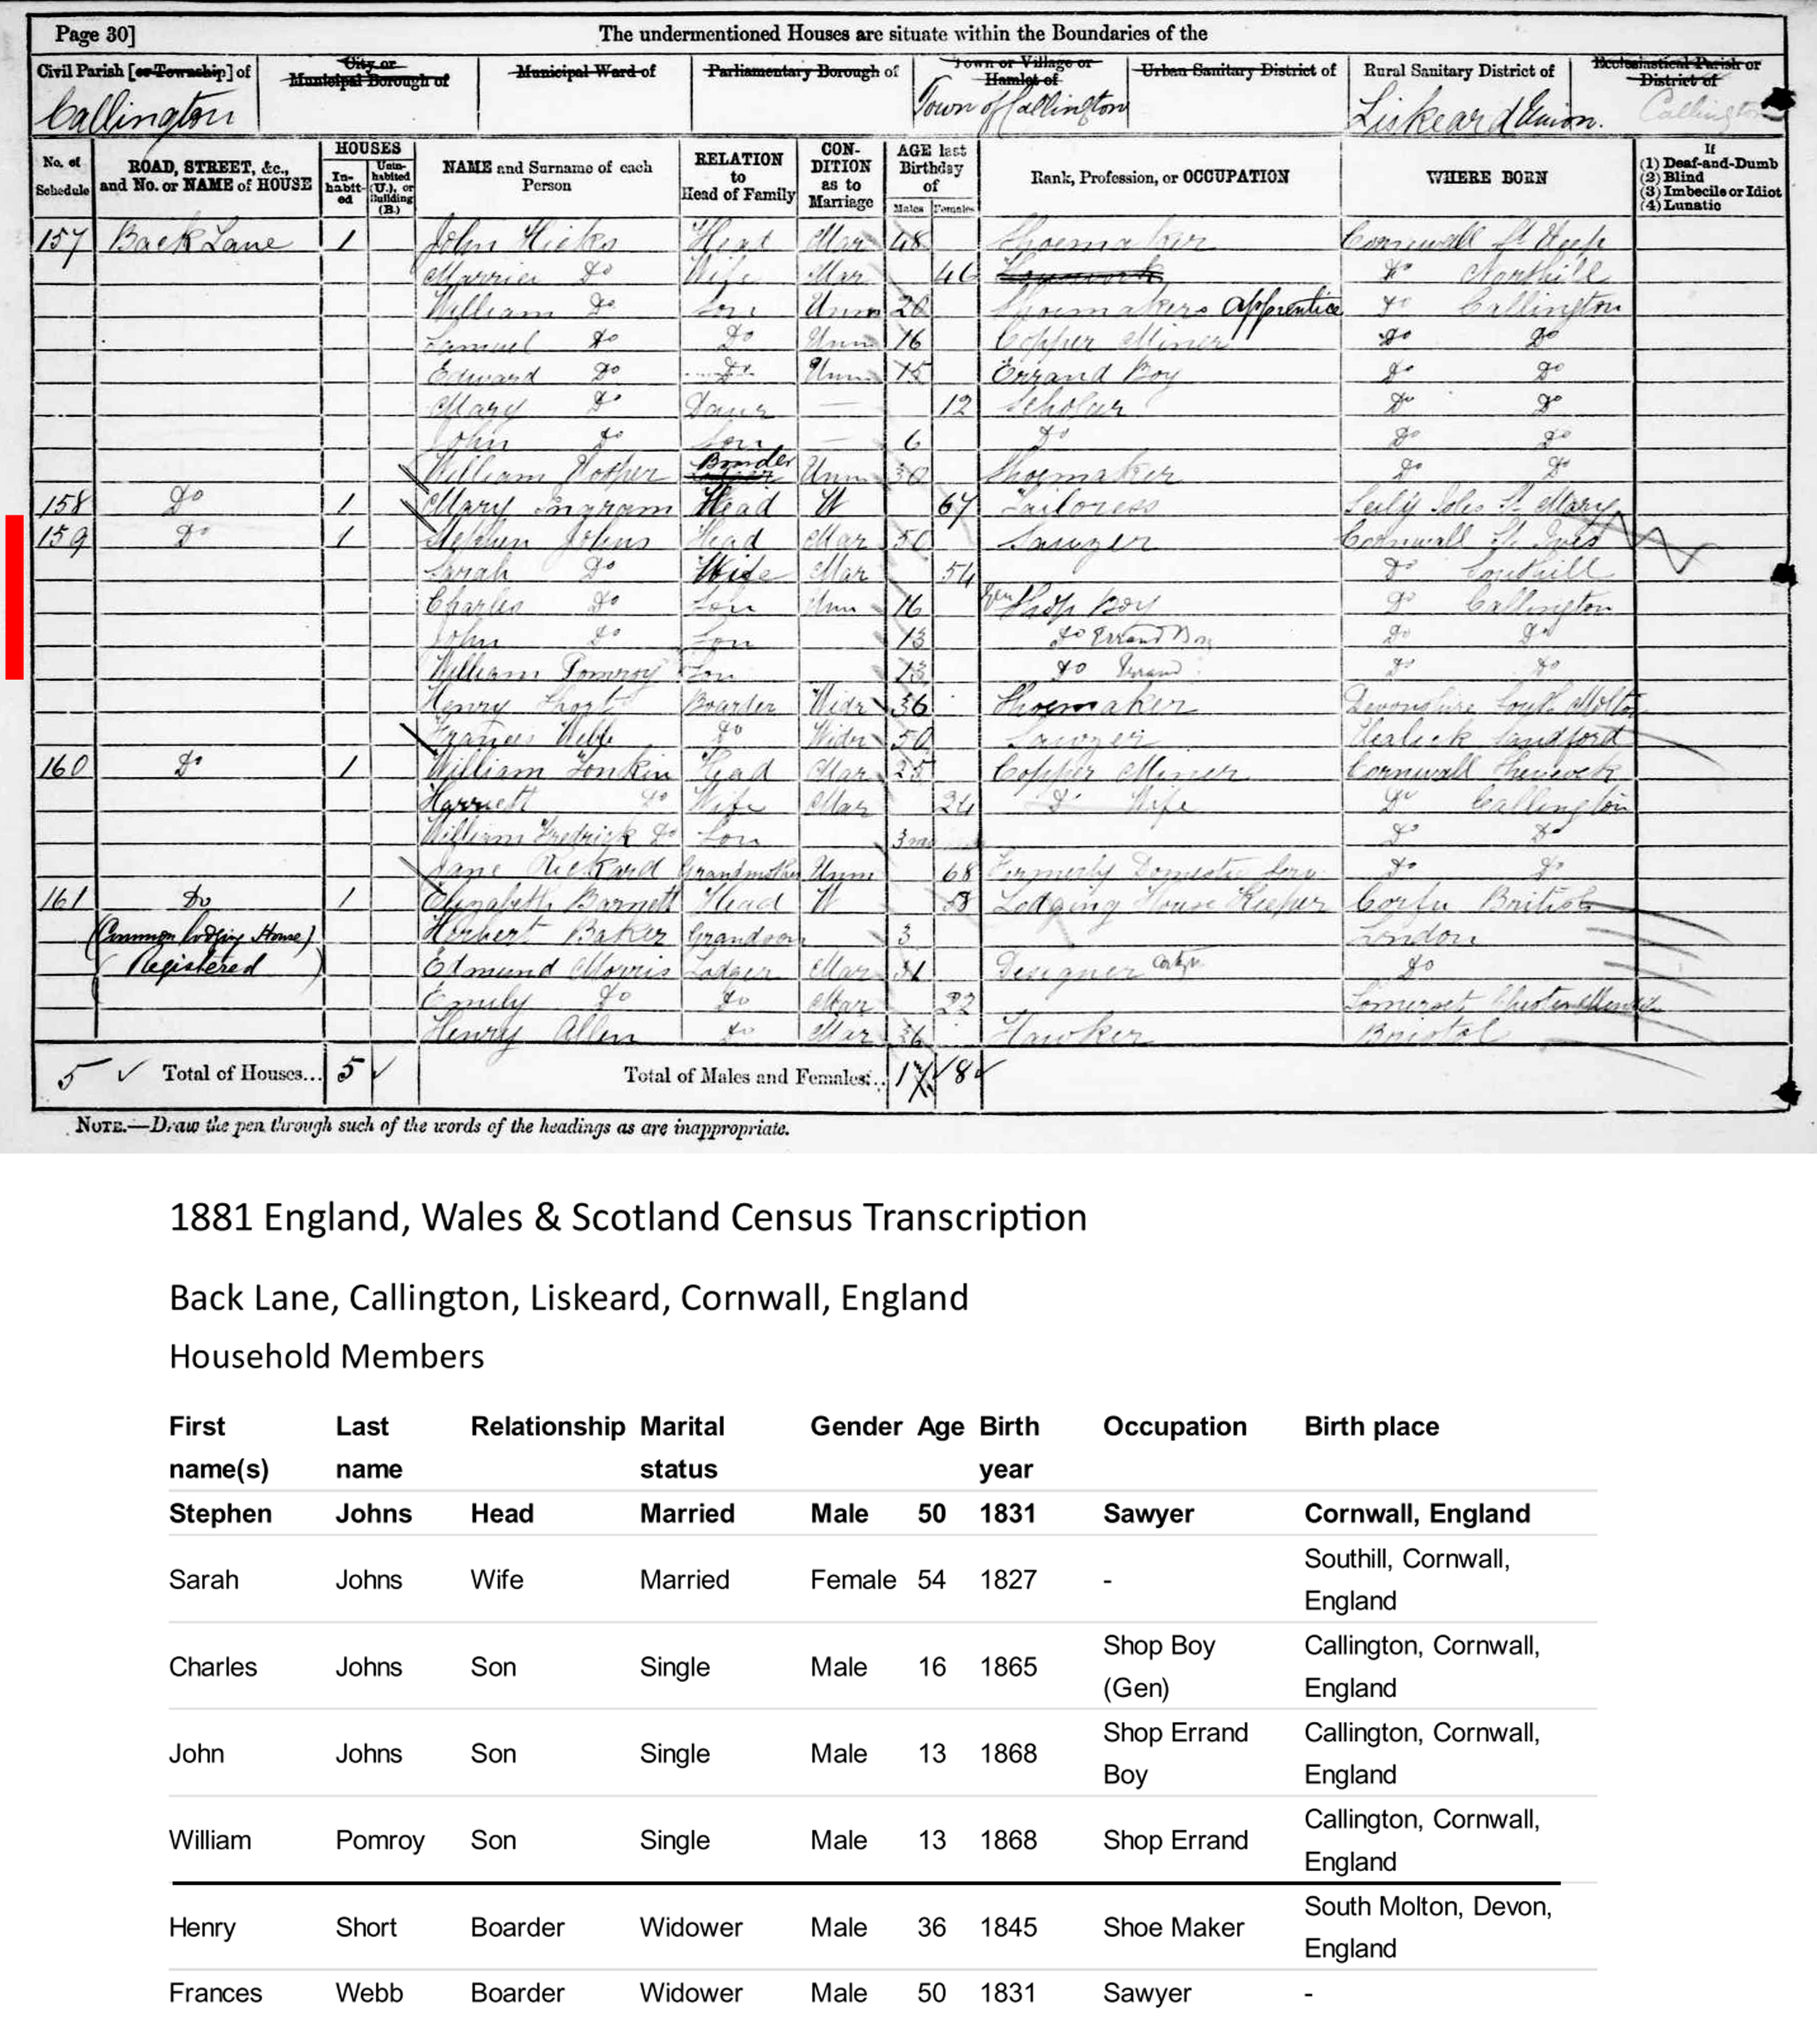 Page 30]
The undermentioned Houses are situate within the Boundaries of the
Civil Parish [or Township] of
City or Municipal Borough of
Municipal Ward of
Parliamentary Borough of
Town or Village or Hamlet of
Urban Sanitary District of
Rural Sanitary District of
Ecclesiastical Parish or District of
Callington
Town of Callington
Liskeard Union.
Callington
No. of Schedule
ROAD, STREET, &c., and No. or NAME of HOUSE
HOUSES
In-habit-ed
Unin-habited (U.), or Building (B.)
NAME and Surname of each Person
RELATION to Head of Family
CON-DITION as to Marriage
AGE last Birthday of
Males Females
Rank, Profession, or OCCUPATION
WHERE BORN
If
(1) Deaf-and-Dumb
(2) Blind
(3) Imbecile or Idiot
(4) Lunatic
157 Back Lane 1 John Hicks Head Mar 48 Shoemaker Cornwall St
Do Wife Mar 46 Do Northill
William Do Son Unm 20 Shoemakers Apprentice Do Callington
Samuel Do Do Unm 16 Copper Miner Do Do
Edward Do Do Unm 15 Errand Boy Do Do
Mary Do Daur — 12 Scholar Do Do
John Do Son — 6 Do Do Do
William Unm 30 Shoemaker Do Do
158 Do 1 Mary Ingram Head W 67 Tailoress Scily Isles St Mary
159 Do 1 Stephen Johns Head Mar 50 Sawyer Cornwall St Ives
Sarah Do Wife Mar 54 Do Southill
Charles Do Son Unm 16 Gen Shop Boy Do Callington
John Do Son 13 Do Errand Boy Do Do
William Pomroy Son 13 Do Errand Do Do
Henry Short Boarder Widr 36 Shoemaker Devonshire South Molton
Frances Webb Do Widr 50 Sawyer Sandford
160 Do 1 William Tonkin Head Mar 25 Copper Miner Cornwall
Harriett Do Wife Mar 24 Do Wife Do Callington
William Fredrick Do Son 3 mo Do Do
Jane Rickard Grandmother Unm 68 Formerly Domestic Serv Do Do
161 Do 1 Elizabeth Barnett Head W 58 Lodging House Keeper Corfu British
(Common Lodging House) Herbert Baker Grandson 3 London
(Registered) Edmund Morris Lodger Mar 31 Designer Do
Emily Do Do Mar 22 Somerset
Henry Allen Do Mar 36 Hawker Bristol
5 Total of Houses... 5 Total of Males and Females... 17 8
NOTE.—Draw the pen through such of the words of the headings as are inappropriate.
1881 England, Wales & Scotland Census Transcription
Back Lane, Callington, Liskeard, Cornwall, England
Household Members
First name(s) Last name Relationship Marital status Gender Age Birth year Occupation Birth place
Stephen Johns Head Married Male 50 1831 Sawyer Cornwall, England
Sarah Johns Wife Married Female 54 1827 - Southill, Cornwall, England
Charles Johns Son Single Male 16 1865 Shop Boy (Gen) Callington, Cornwall, England
John Johns Son Single Male 13 1868 Shop Errand Boy Callington, Cornwall, England
William Pomroy Son Single Male 13 1868 Shop Errand Callington, Cornwall, England
Henry Short Boarder Widower Male 36 1845 Shoe Maker South Molton, Devon, England
Frances Webb Boarder Widower Male 50 1831 Sawyer -